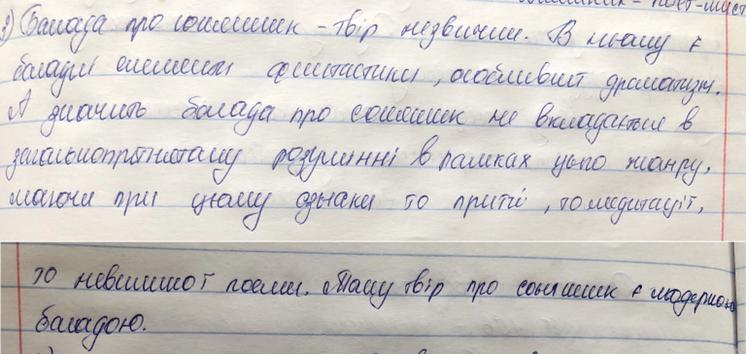 3) Балада про соняшник – твір незвичний. В ньому є
баладні елементи фантастики, особливий драматизм.
А значить балада про соняшник не вкладається в
загальноприйнятому розумінні в рамках цього жанру,
маючи при цьому ознаки то притчі, то медитації,
то невеликої поеми. Тому твір про соняшник є модерною
баладою.